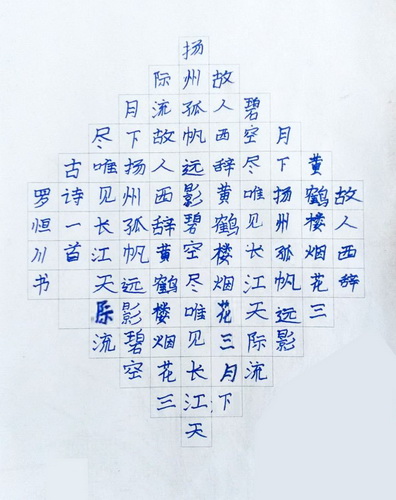 扬
际州故
月流孤人碧
尽下故帆西空月
古唯扬人远辞尽下黄
罗诗见州西影黄唯扬鹤故
恒一长孤辞碧鹤见州楼人
川首江帆黄空楼长孤烟西
书天远鹤尽烟江帆花辞
际影楼唯花天远三
流碧烟见三际影
空花长月流
三江下
天